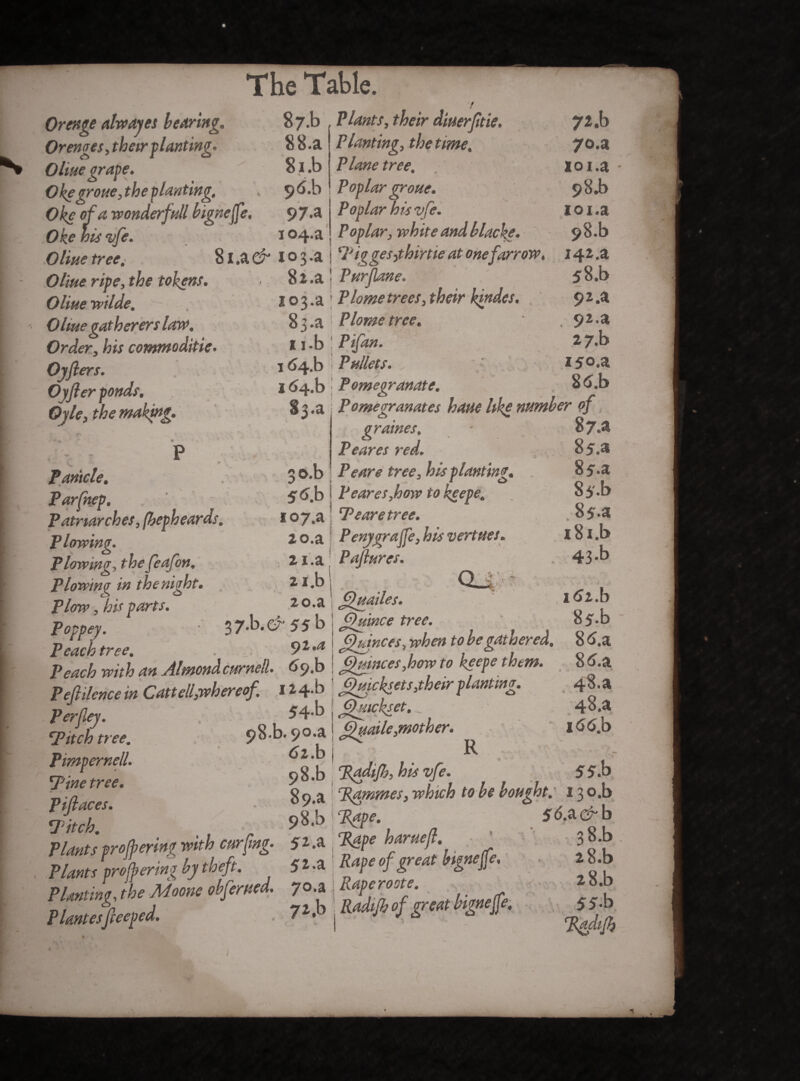 The Table.
Orenge alwayes bearing. 87.b
Orenges, their planting. 88.a
Oliue grape. 81.b
Oke groue, the planting. 96.b
Oke of a wonderfull bignesse. 97.a
Oke his vse. 104.a
Oliue tree. 81.a & 103.a
Oliue ripe, the tokens. 82.a
Oliue wilde. 103.a
Oliue gatherers law. 83.a
Order, his commoditie. 11.b
Oysters. 164.b
Oyster ponds. 164.b
Oyle, the making. 83.a
P
Panicle. 30.b
Parsnep. 56.b
Patriarches, shepheards. 107.a
Plowing. 20.a
Plowing, the season. 21.a
Plowing in the night. 21.b
Plow, his parts. 20.a
Poppey. 37.b. & 55 b
Peach tree. 92.a
Peach with an Almond curnell. 69.b
Pestilence in Cattell, whereof. 124.b
Persley. 54.b
Pitch tree. 98.b. 90.a
Pimpernell. 62.b
Pine tree. 98.b
Pistaces. 89.a
Pitch. 98.b
Plants prospering with cursing. 52.a
Plants prospering by theft. 52.a
Planting, the Moone obserued. 70.a
Plantes steeped. 72.b
Plants, their diuersitie. 72.b
Planting, the time. 70.a
Plane tree. 101.a
Poplar groue. 98.b
Poplar his vse. 101.a
Poplar, white and blacke. 98.b
Pigges, thirtie at one farrow. 142.a
Purslane. 58.b
Plome trees, their kindes. 92.a
Plome tree. 92.a
Pisan. 27.b
Pullets. 150.a
Pomegranate. 86.b
Pomegranates haue like number of
graines. 87.a
Peares red. 85.a
Peare tree, his planting. 85.a
Peares, how to keepe. 85.b
Peare tree. 85.a
Penygrasse, his vertues. 181.b
Pastures. 43.b
Q
Quailes. 162.b
Quince tree. 85.b
Quinces, when to be gathered. 86.a
Quinces, how to keepe them. 86.a
Quicksets, their planting. 48.a
Quickset. 48.a
Quaile, mother. 166.b
R
Radish, his vse. 55.b
Rammes, which to be bought. 130.b
Rape. 56.a & b
Rape haruest. 38.b
Rape of great bignesse. 28.b
Rape roote. 28.b
Radish of great bignesse. 55.b
Radish